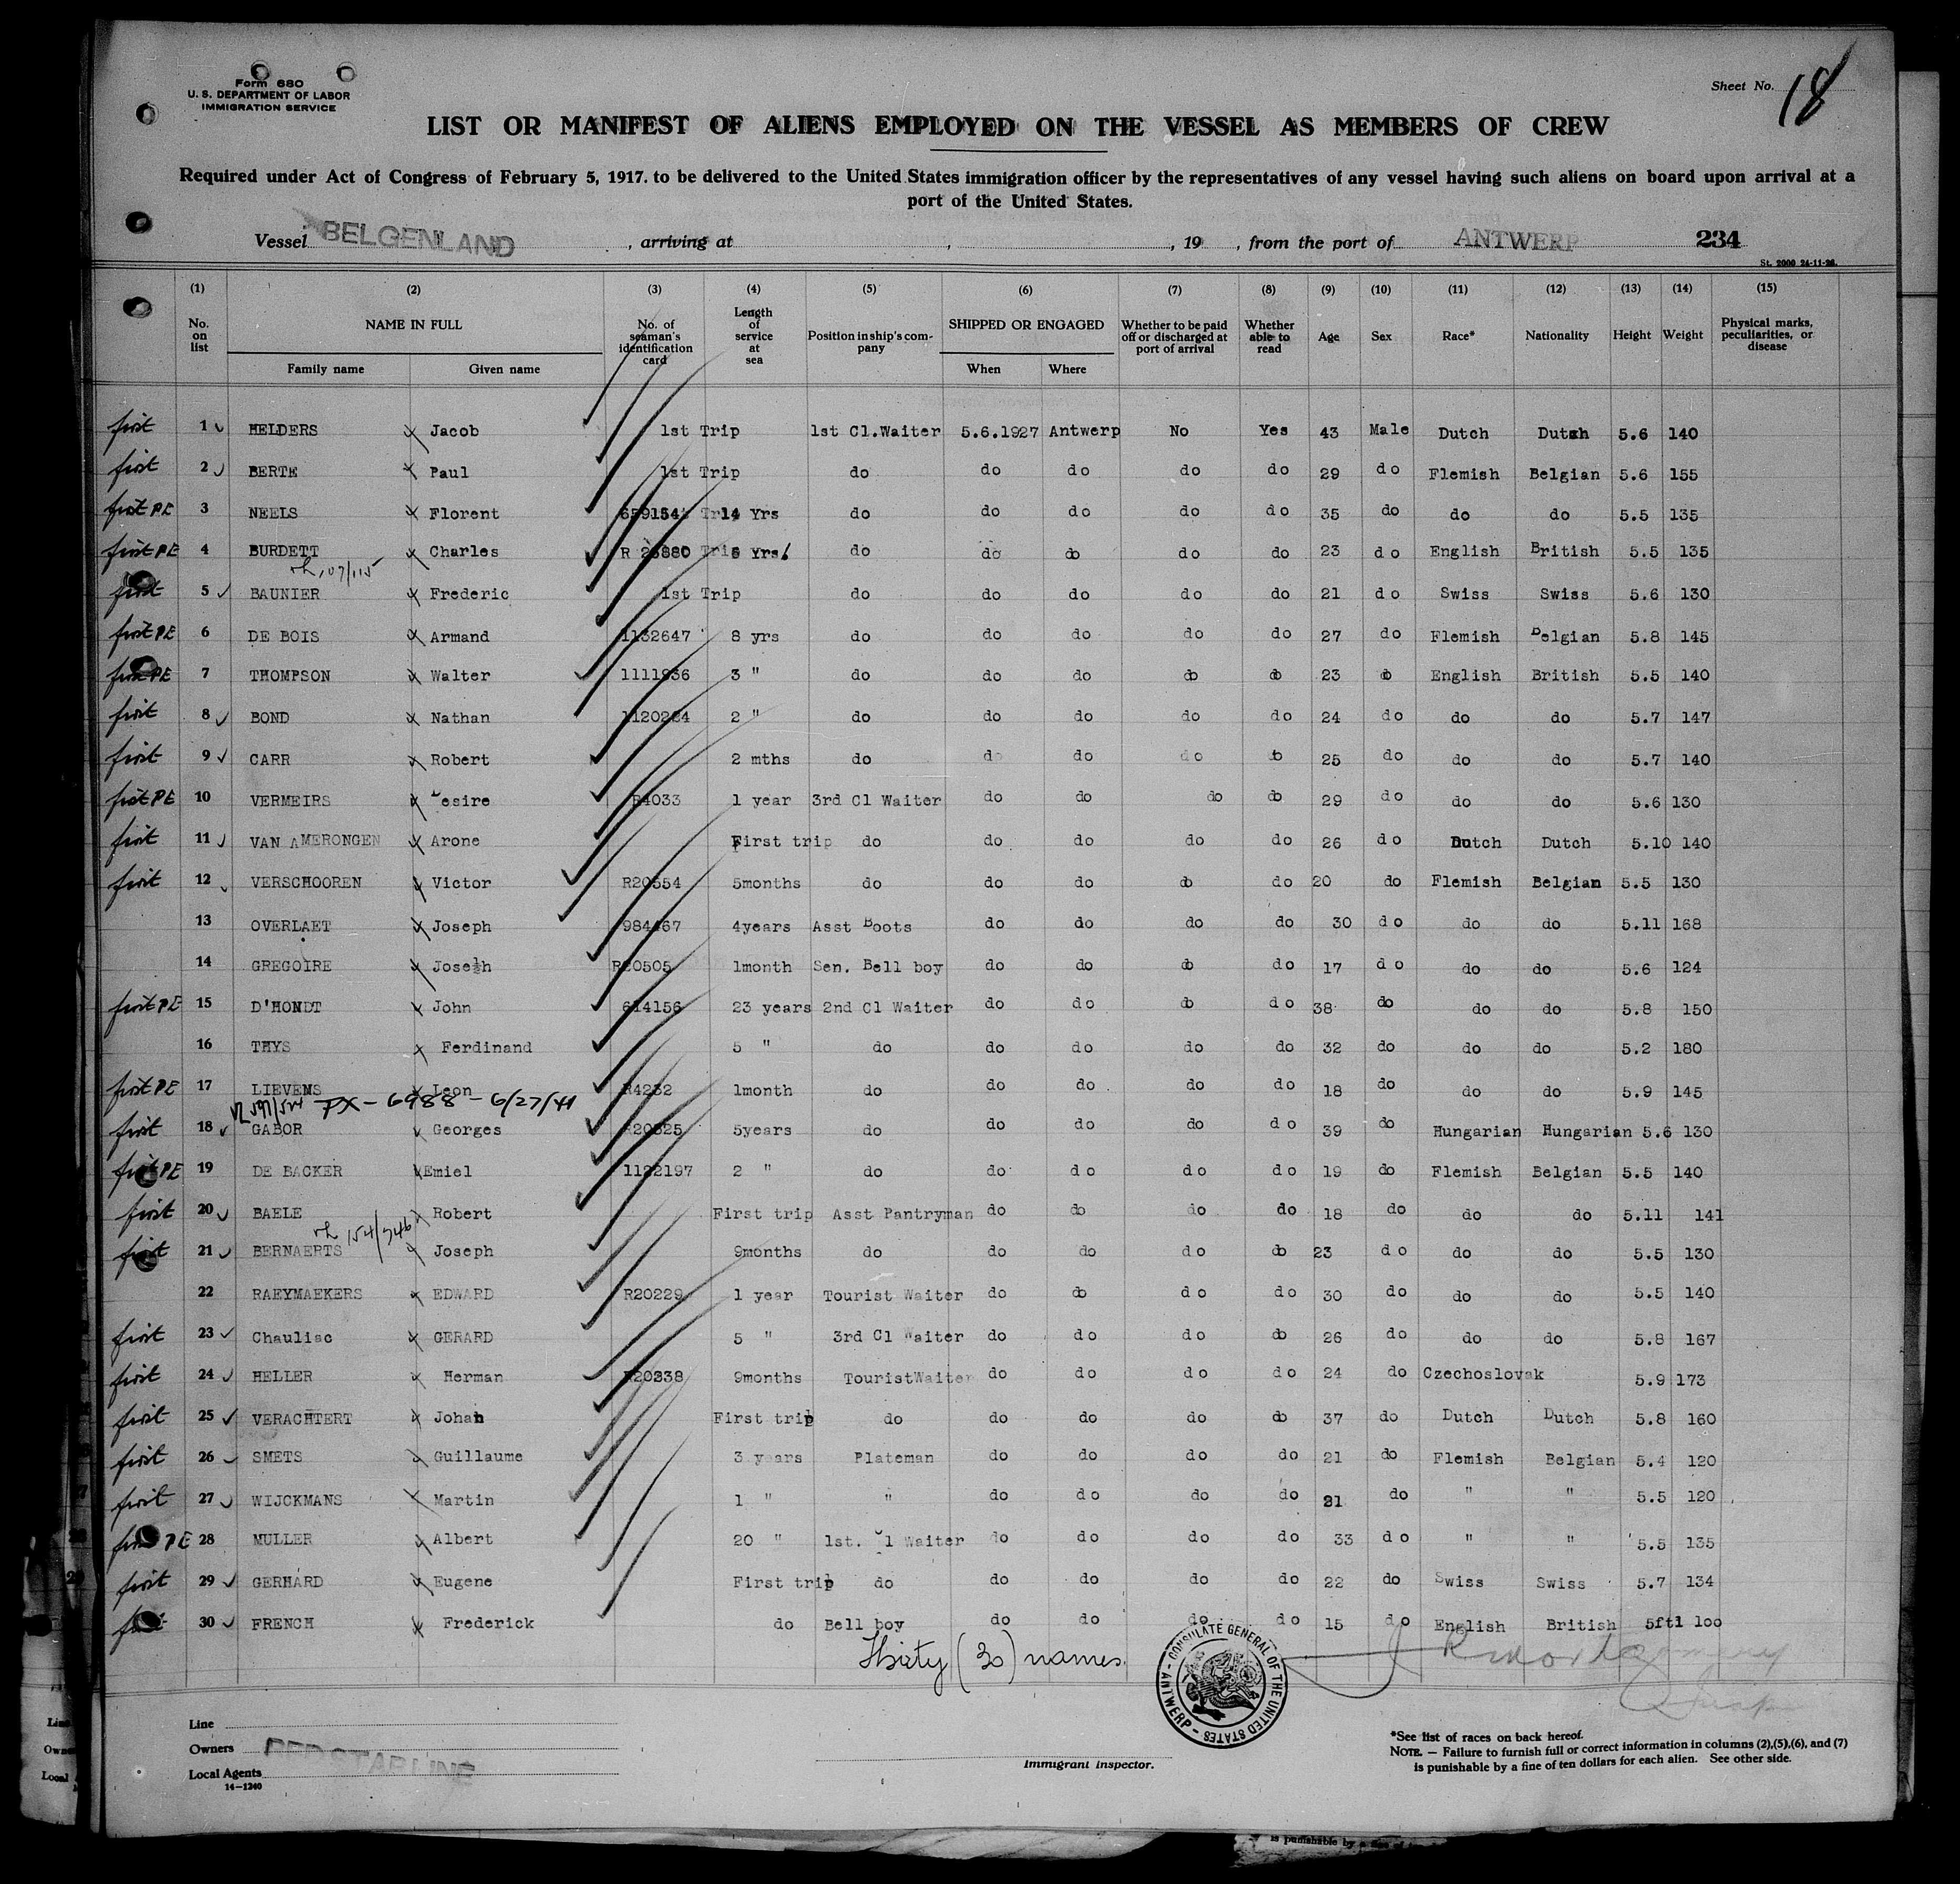 Form 680
U. S. DEPARTMENT OF LABOR
IMMIGRATION SERVICE
Sheet No. 18
LIST OR MANIFEST OF ALIENS EMPLOYED ON THE VESSEL AS MEMBERS OF CREW
Required under Act of Congress of February 5, 1917. to be delivered to the United States immigration officer by the representatives of any vessel having such aliens on board upon arrival at a
port of the United States.
Vessel BELGENLAND , arriving at , , 19 , from the port of ANTWERP 234
St. 2000 24-11-26.
(1) (2) (3) (4) (5) (6) (7) (8) (9) (10) (11) (12) (13) (14) (15)
No. on list NAME IN FULL Family name Given name No. of seaman's identification card Length of service at sea Position in ship's company SHIPPED OR ENGAGED When Where Whether to be paid off or discharged at port of arrival Whether able to read Age Sex Race* Nationality Height Weight Physical marks, peculiarities, or disease
first 1 HELDERS Jacob 1st Trip 1st Cl.Waiter 5.6.1927 Antwerp No Yes 43 Male Dutch Dutch 5.6 140
first 2 BERTE Paul 1st Trip do do do do do 29 do Flemish Belgian 5.6 155
first PE 3 NEELS Florent 14 Yrs do do do do do 35 do do do 5.5 135
first PE 4 BURDETT Charles Yrs do do do do do 23 do English British 5.5 135
107/115
first 5 BAUNIER Frederic 1st Trip do do do do do 21 do Swiss Swiss 5.6 130
first PE 6 DE BOIS Armand 1132647 8 yrs do do do do do 27 do Flemish Belgian 5.8 145
first PE 7 THOMPSON Walter 1111936 3 " do do do do do 23 do English British 5.5 140
first 8 BOND Nathan 1120264 2 " do do do do do 24 do do do 5.7 147
first 9 CARR Robert 2 mths do do do do do 25 do do do 5.7 140
first PE 10 VERMEIRS esire R4033 1 year 3rd Cl Waiter do do do do 29 do do do 5.6 130
first 11 VAN AMERONGEN Arone First trip do do do do do 26 do Dutch Dutch 5.10 140
first 12 VERSCHOOREN Victor R20554 5months do do do do do 20 do Flemish Belgian 5.5 130
13 OVERLAET Joseph 984467 4years Asst Boots do do do do 30 do do do 5.11 168
14 GREGOIRE Joseph R20505 1month Sen. Bell boy do do do do 17 do do do 5.6 124
first PE 15 D'HONDT John 614156 23 years 2nd Cl Waiter do do do do 38 do do do 5.8 150
16 THYS Ferdinand 5 " do do do do do 32 do do do 5.2 180
first PE 17 LIEVENS Leon R4232 1month do do do do do 18 do do do 5.9 145
PX - 6988 - 6/27/41
first 18 GABOR Georges R20525 5years do do do do do 39 do Hungarian Hungarian 5.6 130
first PE 19 DE BACKER Emiel 1122197 2 " do do do do do 19 do Flemish Belgian 5.5 140
first 20 BAELE Robert First trip Asst Pantryman do do do do 18 do do do 5.11 141
154/746
first 21 BERNAERTS Joseph 9months do do do do do 23 do do do 5.5 130
22 RAEYMAEKERS EDWARD R20229 1 year Tourist Waiter do do do do 30 do do do 5.5 140
first 23 Chauliac GERARD 5 " 3rd Cl Waiter do do do do 26 do do do 5.8 167
first 24 HELLER Herman R20338 9months TouristWaiter do do do do 24 do Czechoslovak 5.9 173
first 25 VERACHTERT Johan First trip do do do do do 37 do Dutch Dutch 5.8 160
first 26 SMETS Guillaume 3 years Plateman do do do do 21 do Flemish Belgian 5.4 120
first 27 WIJCKMANS Martin 1 " " do do do do 21 do " " 5.5 120
first PE 28 MULLER Albert 20 " 1st. Cl Waiter do do do do 33 do " " 5.5 135
first 29 GERHARD Eugene First trip do do do do do 22 do Swiss Swiss 5.7 134
first 30 FRENCH Frederick do Bell boy do do do do 15 do English British 5ft1 100
Thirty (30) names.
CONSULATE GENERAL OF THE UNITED STATES - ANTWERP -
Line
Owners RED STAR LINE
Local Agents
14-1240
Immigrant Inspector.
*See list of races on back hereof.
NOTE. — Failure to furnish full or correct information in columns (2),(5),(6), and (7)
is punishable by a fine of ten dollars for each alien. See other side.